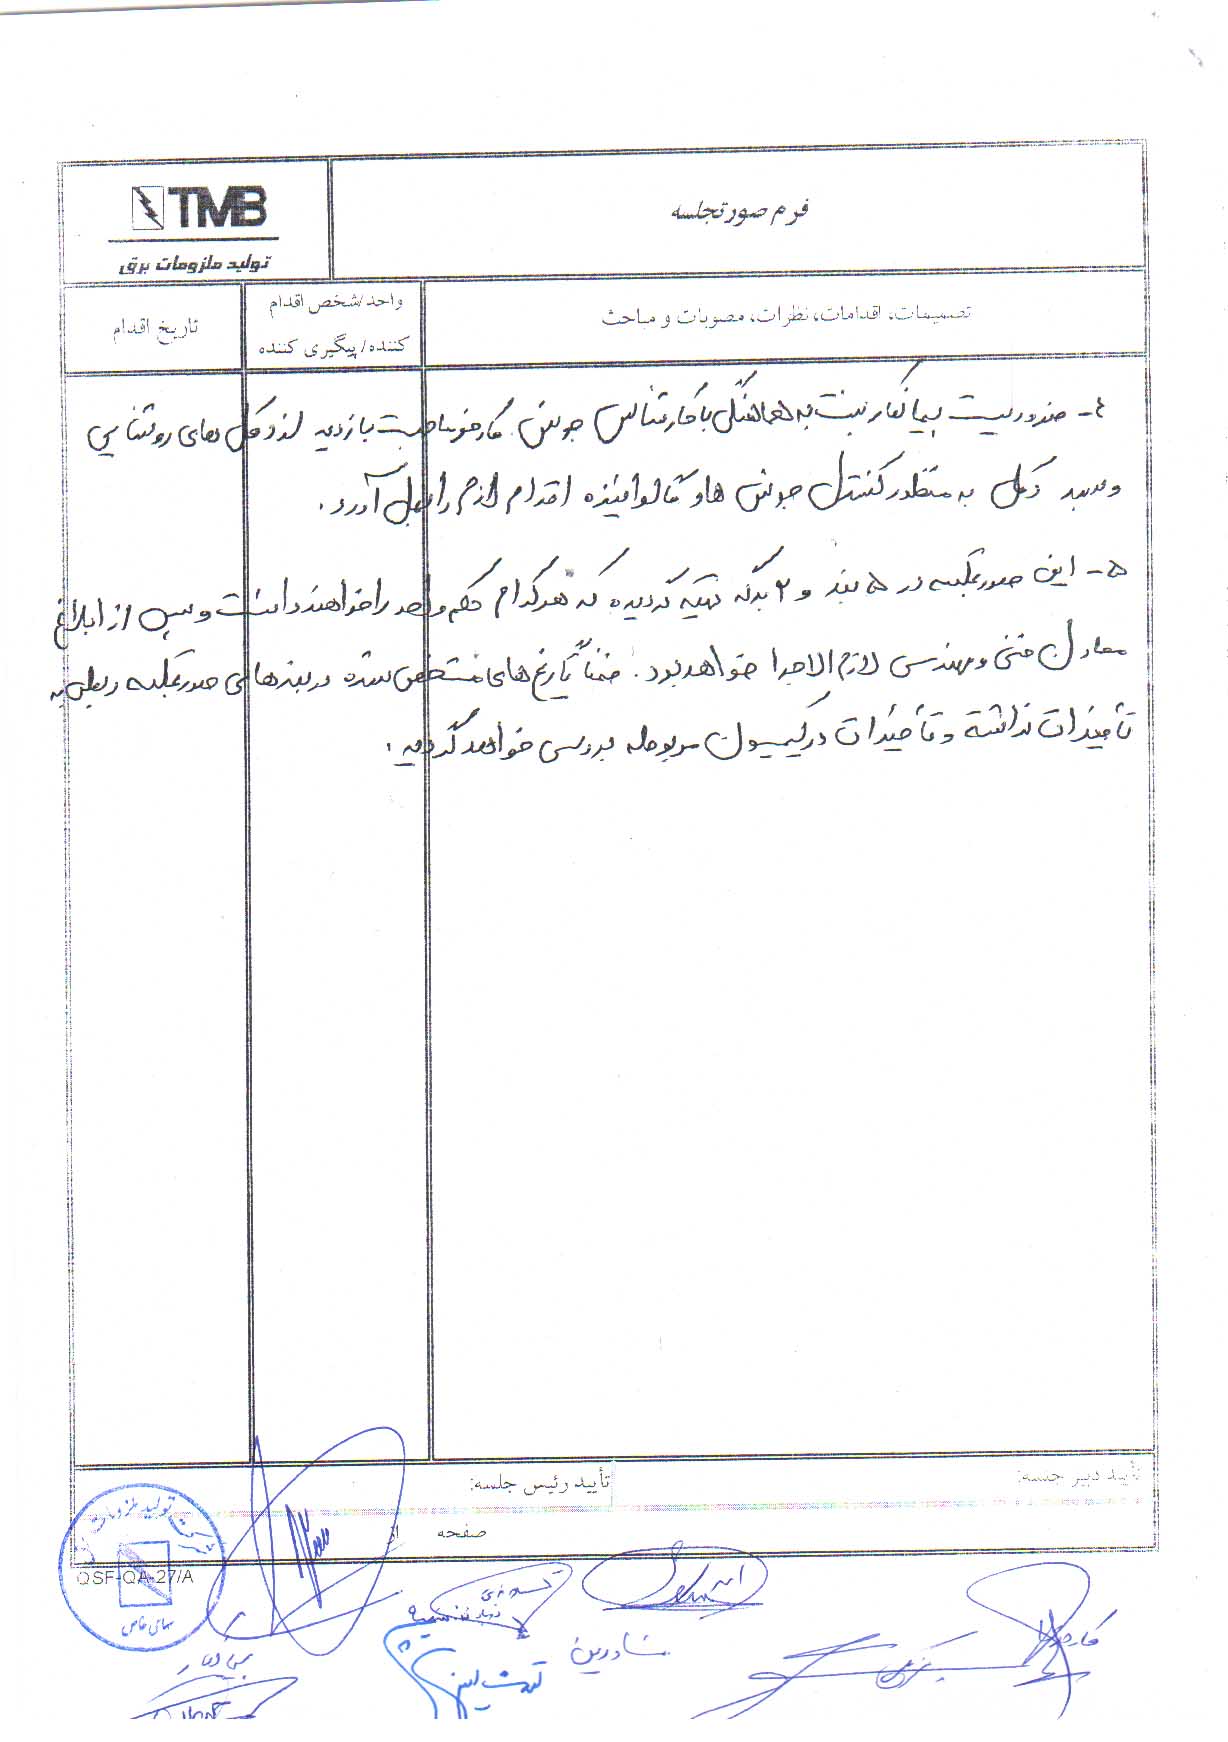 TMB
تولید ملزومات برق
فرم صورتجلسه
تصمیمات، اقدامات، نظرات، مصوبات و مباحث
واحد/شخص اقدام
کننده/پیگیری کننده
تاریخ اقدام
۴- ضروریست پیمانکار نسبت به هماهنگی با کارشناس جوش کارفرما جهت بازدید از دکل های روشنایی
و سبد دکل به منظور کنترل جوش ها و گالوانیزه اقدام لازم را بعمل آورد.
۵- این صورتجلسه در ۵ بند و ۲ برگه تهیه گردیده که هرکدام حکم واحد را خواهند داشت و پس از ابلاغ
معاون فنی و مهندسی لازم الاجرا خواهد بود. ضمناً تاریخ های مشخص شده در بندهای صورتجلسه ربطی به
تأخیرات نداشته و تأخیرات در کمیسیون مربوطه بررسی خواهد گردید.
تأیید دبیر جلسه:
تأیید رئیس جلسه:
صفحه از
QSF-QA-27/A
شرکت تولید ملزومات
سهامی خاص
پیمانکار
مشاورین